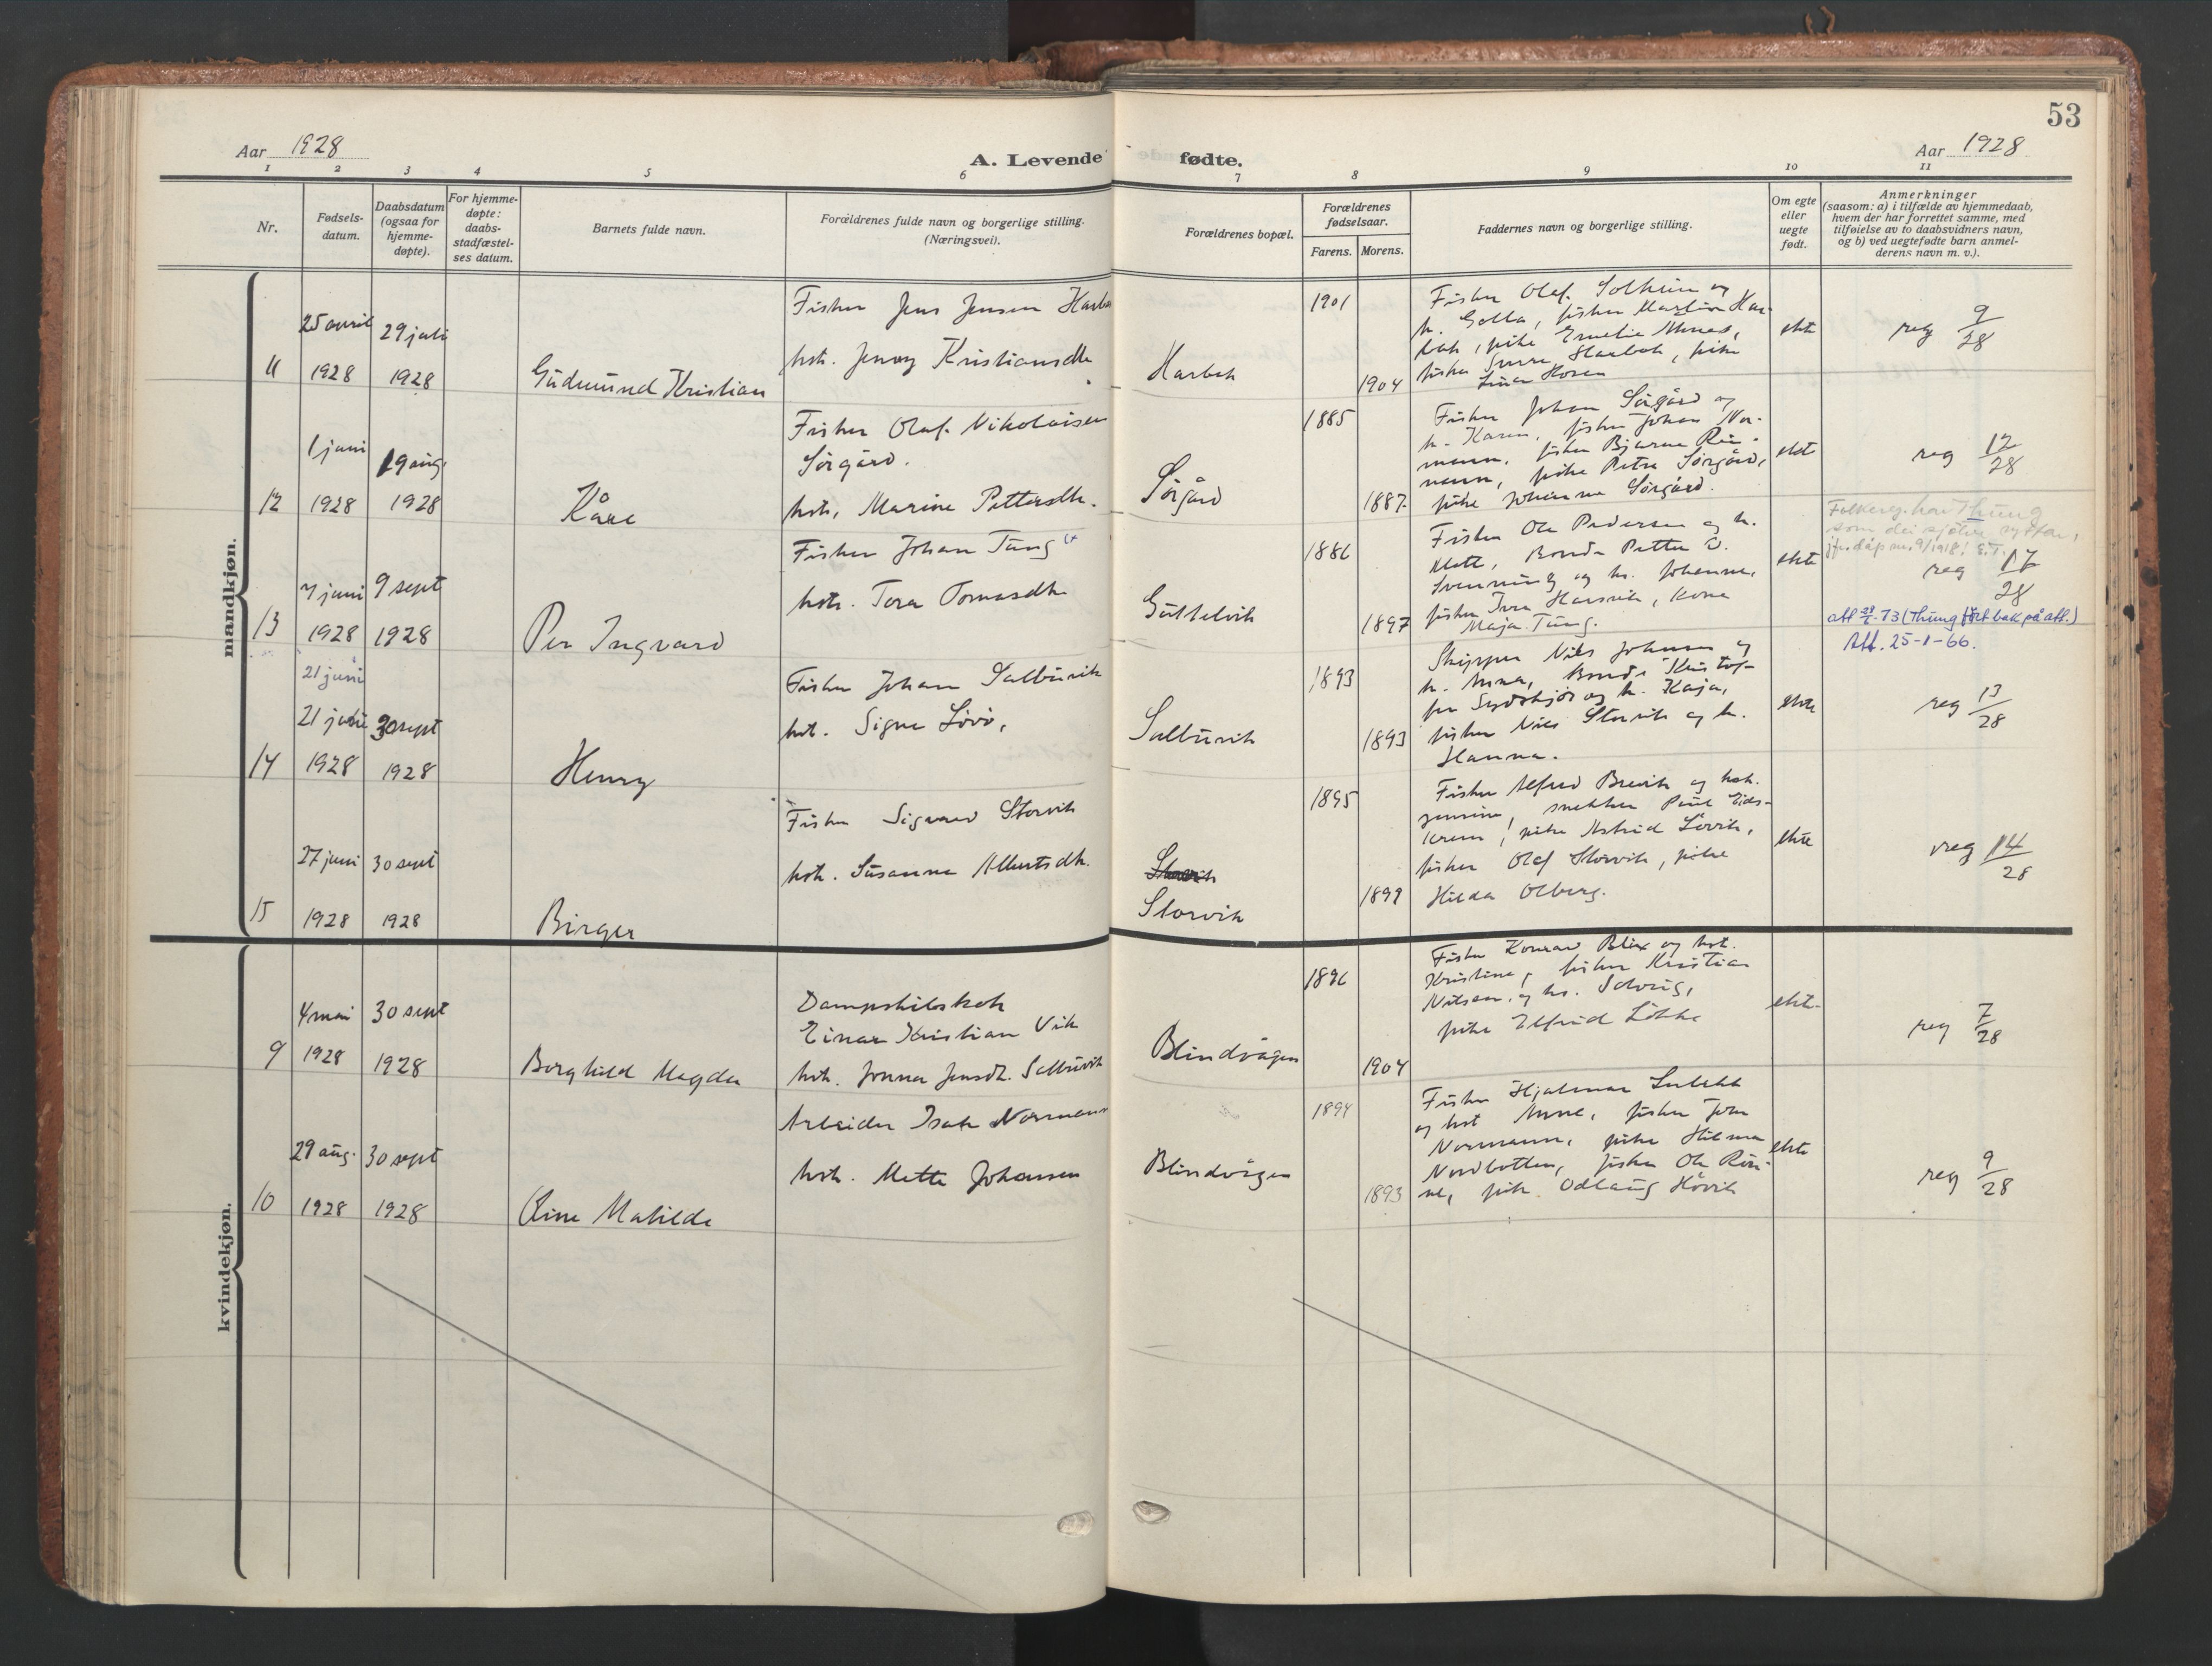 53
Aar 1928
A. Levende fødte.
Aar 1928
1 2 3 4 5 6 7 8 9 10 11
Nr.
Fødsels-
datum.
Daabsdatum
(ogsaa for
hjemme-
døpte).
For hjemme-
døpte:
daabs-
stadfæstel-
ses datum.
Barnets fulde navn.
Forældrenes fulde navn og borgerlige stilling.
(Næringsvei).
Forældrenes bopæl.
Forældrenes
fødselsaar.
Farens. Morens.
Faddernes navn og borgerlige stilling.
Om egte
eller
uegte
født.
Anmerkninger
(saasom: a) i tilfælde av hjemmedaab,
hvem der har forrettet samme, med
tilføielse av to daabsvidners navn,
og b) ved uegtefødte barn anmel-
derens navn m. v.).
mandkjøn.
11
25 april
1928
29 juli
1928
Gudmund Kristian
Fisker Jens Jensen Harbak
hst. Jenny Kristiansdtr
Harbak
1901
1904
Fisker Olaf Solheim og
h. Golla, fisker Martin Har-
bak, pike Emelie Mones,
fisker Sverre Harbak, pike
Lina Hosen
ekte
reg 9/28
12
1 juni
1928
19 aug.
1928
Kåre
Fisker Olaf Nikolaisen
Sørgård.
hst. Marine Pettersdtr.
Sørgård
1885
1887
Fisker Johan Sørgård og
h. Karen, fisker Johan Nor-
mann, fisker Bjarne
pike Petra Sørgård,
pike Johanna Sørgård.
ekte
reg 12/28
13
7 juni
1928
9 sept
1928
Per Ingvard
Fisker Johan Tung
hst. Tora Tomasdtr
Guttelvik
1886
1897
Fisker Ole Pedersen og h.
Bonde Petter
Svenning og h. Johanna,
fisker Harsvik, kone
Maja Tung.
ekte
Folkereg. har Thung
som dei sjølv nyttar,
jfr. dåp nr. 9/1918! E.T.
reg 17/28
att -73 (Thung ført bak på att.)
Att. 25-1-66.
14
21 juni
21 juni
1928
30 sept
1928
Henry
Fisker Johan Salbuvik
hst. Signe Løvø,
Salbuvik
1893
1893
Skipper Nils Johnsen og
h. Anna, Bonde Kristof-
fer Sydskjør og h. Kaja,
fisker Nils Storvik og h.
Hanna.
ekte
reg 13/28
15
27 juni
1928
30 sept
1928
Birger
Fisker Sigvard Storvik
hst. Susanna Albertsdtr.
Storvik
Storvik
1895
1899
Fisker Alfred Brevik og hst.
Jensine, snekker Paul Eids-
krem, pike Astrid Løvik,
fisker Olaf Storvik, pike
Hilda Olberg.
ekte
reg 14/28
kvindekjøn.
9
4 mai
1928
30 sept
1928
Borghild Magda
Dampskibskok
Einar Kristian Vik
hst. Jonna Jensdt. Salbuvik
Blindvågen
1896
1904
Fisker Konrad Blix og hst.
Kristine, fisker Kristian
Nilsen og h. Solveig,
pike Elfrid Løkke
ekte
reg 7/28
10
29 aug.
1928
30 sept
1928
Matilde
Arbeider Isak Normann
hst. Mette Johansen
Blindvågen
1894
1893
Fisker Hjalmar
og hst Anne, fisker Jon
Normann, pike Hilma
Nordbotten, fisker Ole
pike Odlaug Høvik
ekte
reg 9/28